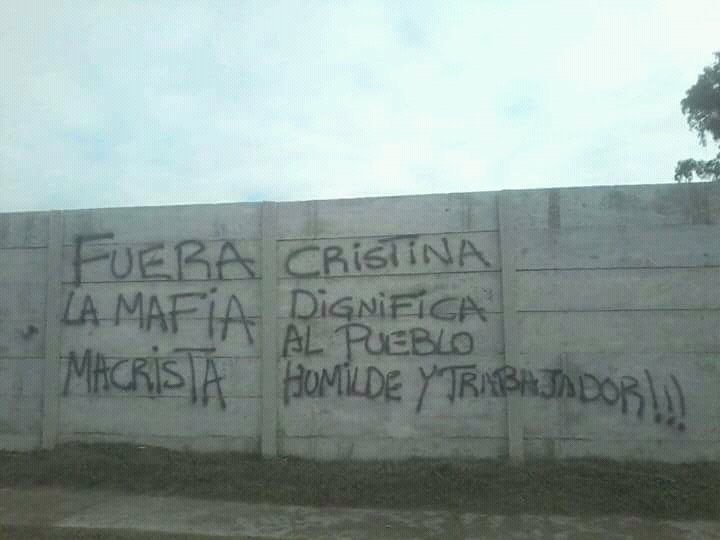 FUERA
LA MAFiA
MACRiSTA
CRiSTiNA
DiGNiFiCA
AL PUEBLO
HUMiLDE Y TRABAJADOR!!!